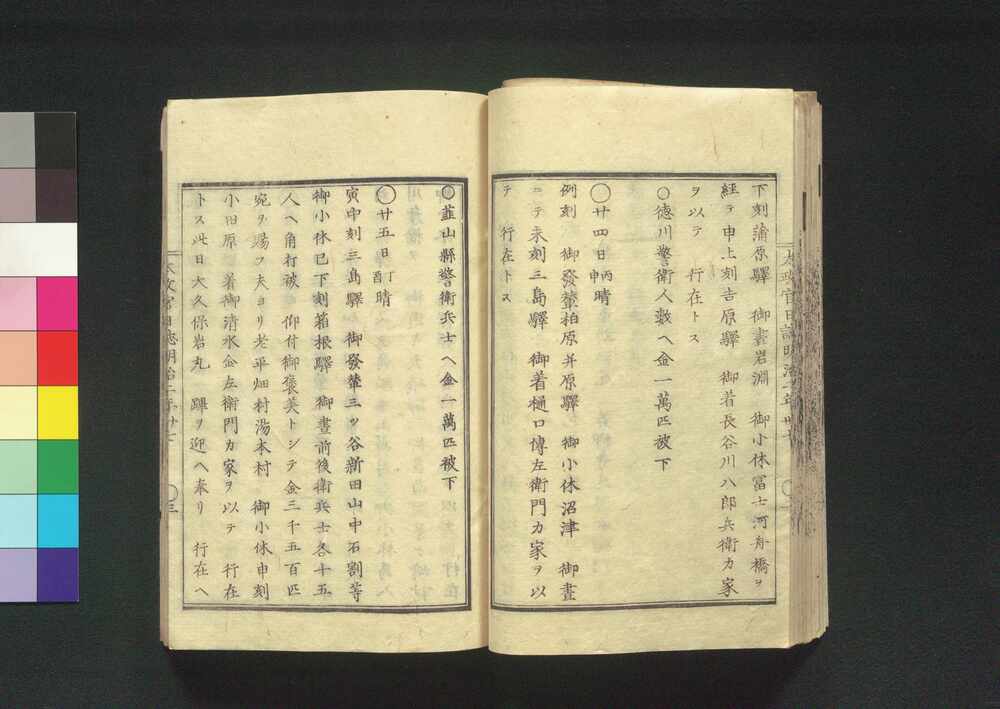 下刻蒲原驛　御晝岩淵　御小休冨士河舟橋ヲ
經テ申上刻吉原驛　御着長谷川八郎兵衛カ家
ヲ以テ　行在トス
○德川警衛人數ヘ金一萬匹被下
○廿四日丙申晴
例刻　御發輦柏原并原驛　御小休沼津　御晝
ニテ未刻三島驛　御着樋口傳左衛門カ家ヲ以
テ　行在トス
○韮山縣警衛兵士ヘ金一萬匹被下
○廿五日丁酉晴
寅中刻三島驛　御發輦三ツ谷新田山中石割等
御小休巳下刻箱根驛　御晝前後衛兵士各十五
人ヘ角打被　仰付御褒美トシテ金三千五百匹
宛ヲ賜フ夫ヨリ老平畑村湯本村　御小休申刻
小田原　着御清水金左衛門カ家ヲ以テ　行在
トス此日大久保岩丸　蹕ヲ迎ヘ奉リ　行在ヘ
太政官日誌明治二年